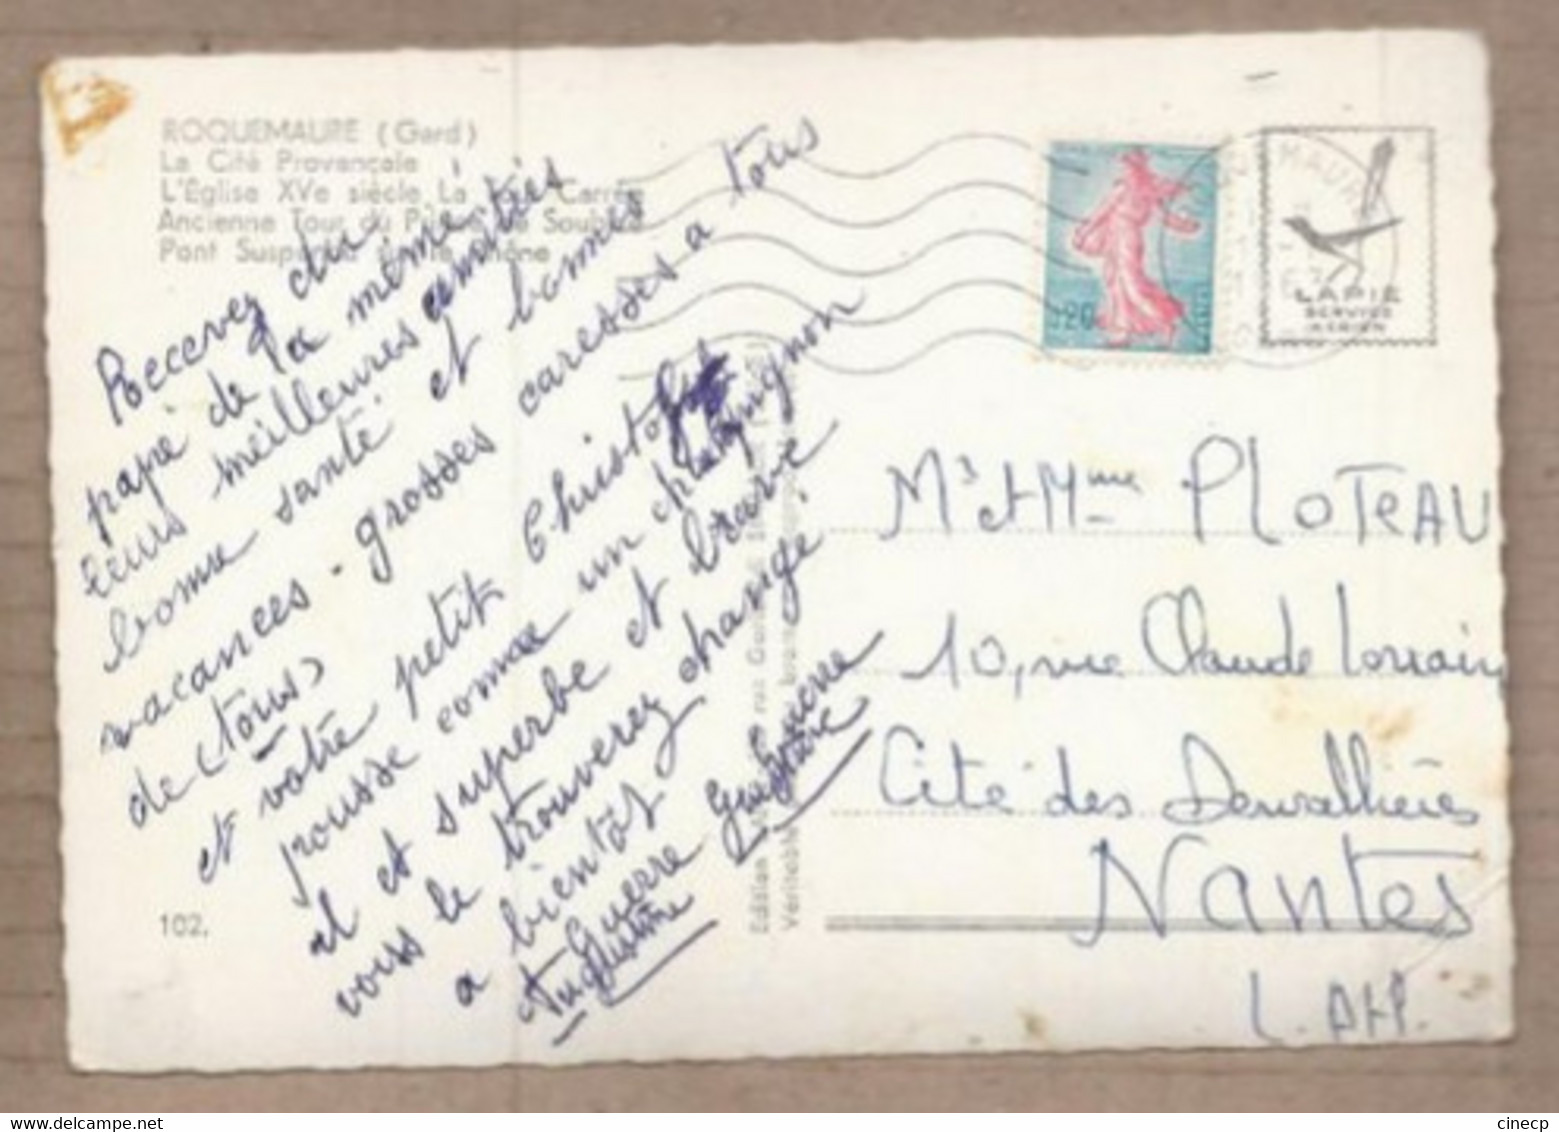 ROQUEMAURE (Gard)
La Cité Provençale
L'Église XVe siècle La Carrée
Ancienne Tour du
Pont Suspendu
Recevez du
papié de la mémé
leurs meilleures amitiés
bonne santé et bonnes
vacances - grosses caresses a tous
de (tous)
et votre petit Christophe
pousse comme un champignon
il et superbe et brave
vous le trouverez changé
a bientôt
Guerre
Augustine
102.
0,20
LAPIE
SERVICE
AERIEN
Mr et Mme PLOTEAU
10, rue Claude Lorrain
Cité des Dervallières
Nantes
L. Atl.
Zoom
cinecp